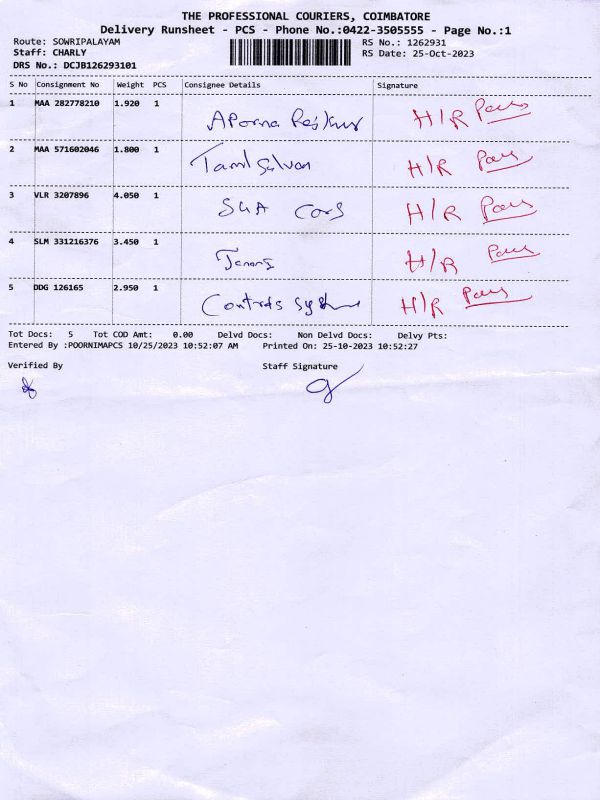 THE PROFESSIONAL COURIERS, COIMBATORE
Delivery Runsheet - PCS - Phone No.:0422-3505555 - Page No.:1
Route: SOWRIPALAYAM RS No.: 1262931
Staff: CHARLY RS Date: 25-Oct-2023
DRS No.: DCJB126293101
S No Consignment No Weight PCS Consignee Details Signature
1 MAA 282778210 1.920 1 H/R
2 MAA 571602046 1.800 1 Tamil Selvan H/R
3 VLR 3207896 4.050 1 H/R
4 SLM 331216376 3.450 1 H/R
5 DDG 126165 2.950 1 H/R
Tot Docs: 5 Tot COD Amt: 0.00 Delvd Docs: Non Delvd Docs: Delvy Pts:
Entered By :POORNIMAPCS 10/25/2023 10:52:07 AM Printed On: 25-10-2023 10:52:27
Verified By Staff Signature